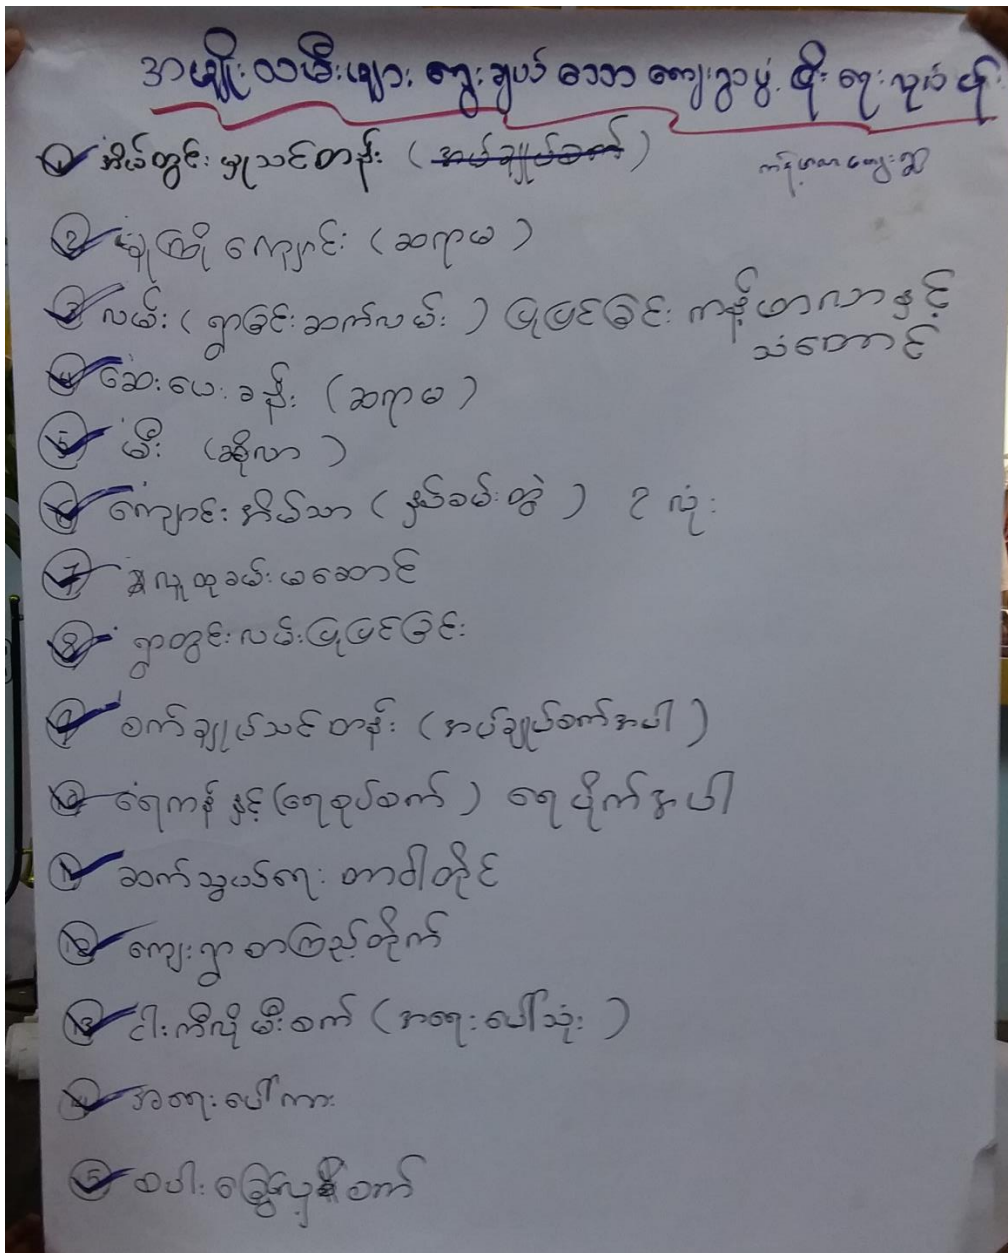 အမျိုးသမီးများ ရွေးချယ်သော ကျေးရွာဖွံ့ဖြိုးရေးလုပ်ငန်း
① အိမ်တွင်းမှုသင်တန်း (အပ်ချုပ်စက်)
ကန့်ဖာလာကျေးရွာ
② မူကြိုကျောင်း (ဆရာမ)
③ လမ်း (ရွာချင်းဆက်လမ်း) ပြုပြင်ခြင်း ကန့်ဖာလာနှင့်
သံတောင်
④ ဆေးပေးခန်း (ဆရာမ)
⑤ မီး (ဆိုလာ)
⑥ ကျောင်းအိမ်သာ (နှစ်ခမ်းတွဲ) ၃ လုံး
⑦ လူထုခမ်းမဆောင်
⑧ ရွာတွင်းလမ်းပြုပြင်ခြင်း
⑨ စက်ချုပ်သင်တန်း (အပ်ချုပ်စက်အပါ)
⑩ ရေကန်နှင့် (ရေစုပ်စက်) ရေပိုက်အပါ
⑪ ဆက်သွယ်ရေးတာဝါတိုင်
⑫ ကျေးရွာစာကြည့်တိုက်
⑬ ငါးကီလိုမီးစက် (အရေးပေါ်သုံး)
⑭ အရေးပေါ်ကား
⑮ စပါးခြွေလှေ့စက်